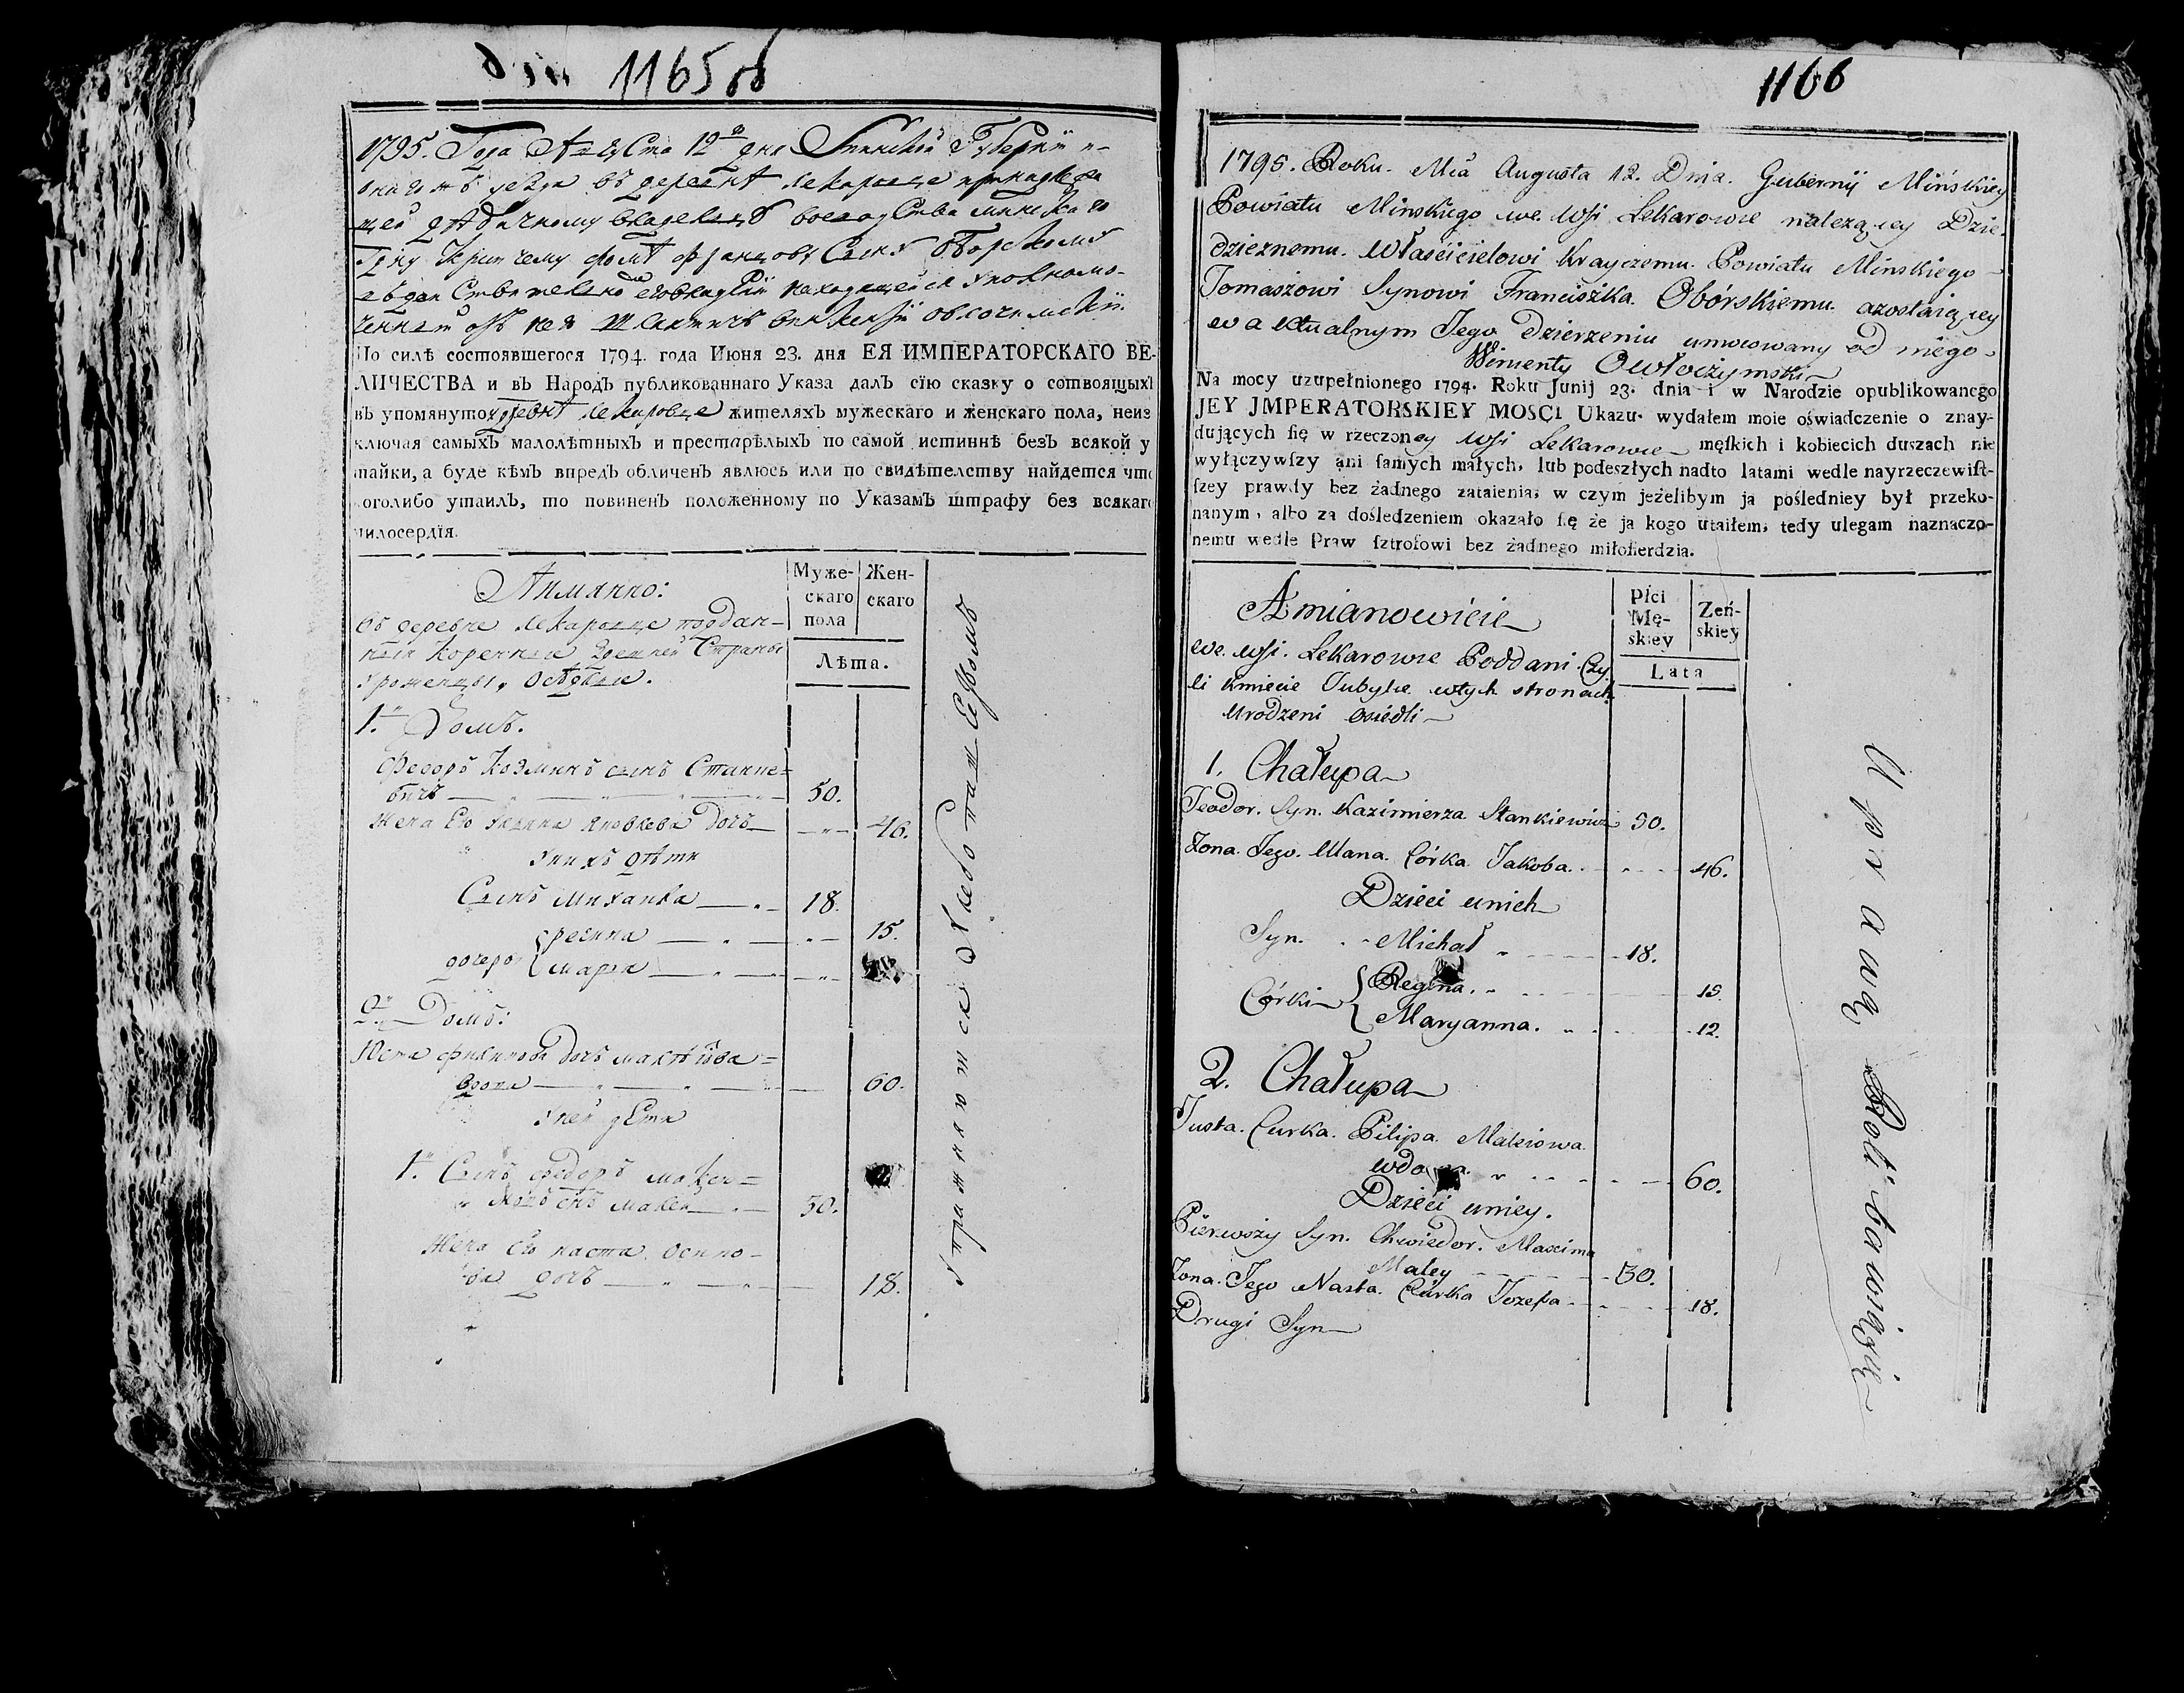 1165 об
1795. Года Августа 12го дня Минской Губернїи и
онагожъ уезда въ деревнѣ Лекаровце принадлежа
щей дѣдичному владельцу воеводства минскаго
крайчему фомѣ францову сыну Оборскому
По силѣ состоявшегося 1794. года Июня 23. дня ЕЯ ИМПЕРАТОРСКАГО ВЕ-
ЛИЧЕСТВА и въ Народъ публикованнаго Указа далъ сїю сказку о сотвоящыхъ
въ упомянутой деревнѣ Лекаровце жителяхъ мужескаго и женскаго пола, неиз
ключая самыхъ малолѣтныхъ и престарѣлыхъ по самой истиннѣ безъ всякой у
тайки, а буде кѣмъ впредь обличенъ явлюсь или по свидѣтелству найдется что
коголибо утаилъ, то повиненъ положенному по Указамъ штрафу без всякаго
милосердїя.
Аимянно:
Муже-
скаго
пола
Жен-
скаго
Лѣта.
въ деревне Лекаровце поддан-
ныя коренныя здешней Страны
уроженцы, оседлые.
1. Домъ.
Федоръ Козминъ сынъ Станке-
вичъ 50.
Жена Его Ульяна Яковлева Дочь 46.
У нихъ дѣти
Сынъ Михайла 18.
дочери регина 15.
марья
2. Домъ:
Юста филипова дочь малѣйова
вдова 60.
У ней дети
1. Сынъ федоръ
малей 30.
Жена Его наста Осипо-
ва дочь 18.
Упражняются Хлебопашеством
1166
1795. Roku. Mca Augusta 12. Dnia. Gubernij Mińskiey
Powiatu Minskiego we Wsi Lekarowie należącey Dzie-
dzicznemu. Właścicielowi Krayczemu. Powiatu Minskiego
Tomaszowi Synowi Franciszka. Obórskiemu. azostaiącey
w aktualnym Jego Dzierżeniu umocowany od niego
Na mocy uzupełnionego 1794. Roku Junij 23. dnia i w Narodzie opublikowanego
JEY JMPERATORSKIEY MOSCI Ukazu. wydałem moie oświadczenie o znay-
dujących ſię w rzeczoney Wsi Lekarowie męſkich i kobiecich duszach nie
wyłączywſzy ani ſamych małych, lub podeszłych nadto latami wedle nayrzeczewiſt-
ſzey prawdy bez żadnego zataienia; w czym jeżelibym ja pośledniey był przeko-
nanym, albo za dośledzeniem okazało ſię że ja kogo utaiłem, tedy ulegam naznaczo-
nemu wedle Praw ſztrofowi bez żadnego miłoſierdzia.
Amianowicie
Płci
Mę-
skiey
Zeń-
skiey
Lata
we. wsi. Lekarowie Poddani. Czy-
li kmiecie Tubylce wtych stronach
Urodzeni osiedli
1. Chałupa
Teodor. Syn. Kazimierza Stankiewicz 50.
Zona. Jego. Ulana. Córka Jakoba. 46.
Dzieci unich
Syn. Michał 18.
Córki Regina. 15.
Maryanna. 12.
2. Chałupa
Justa. Curka. Filipa. Maleiowa
wdowa. 60.
Dzieci uniey.
Pierwszy Syn. Chwiedor. Maxima
Maley 30.
Zona. Jego Nasta. Curka Jozefa 18.
Drugi Syn
Uprawą Roli bawią się